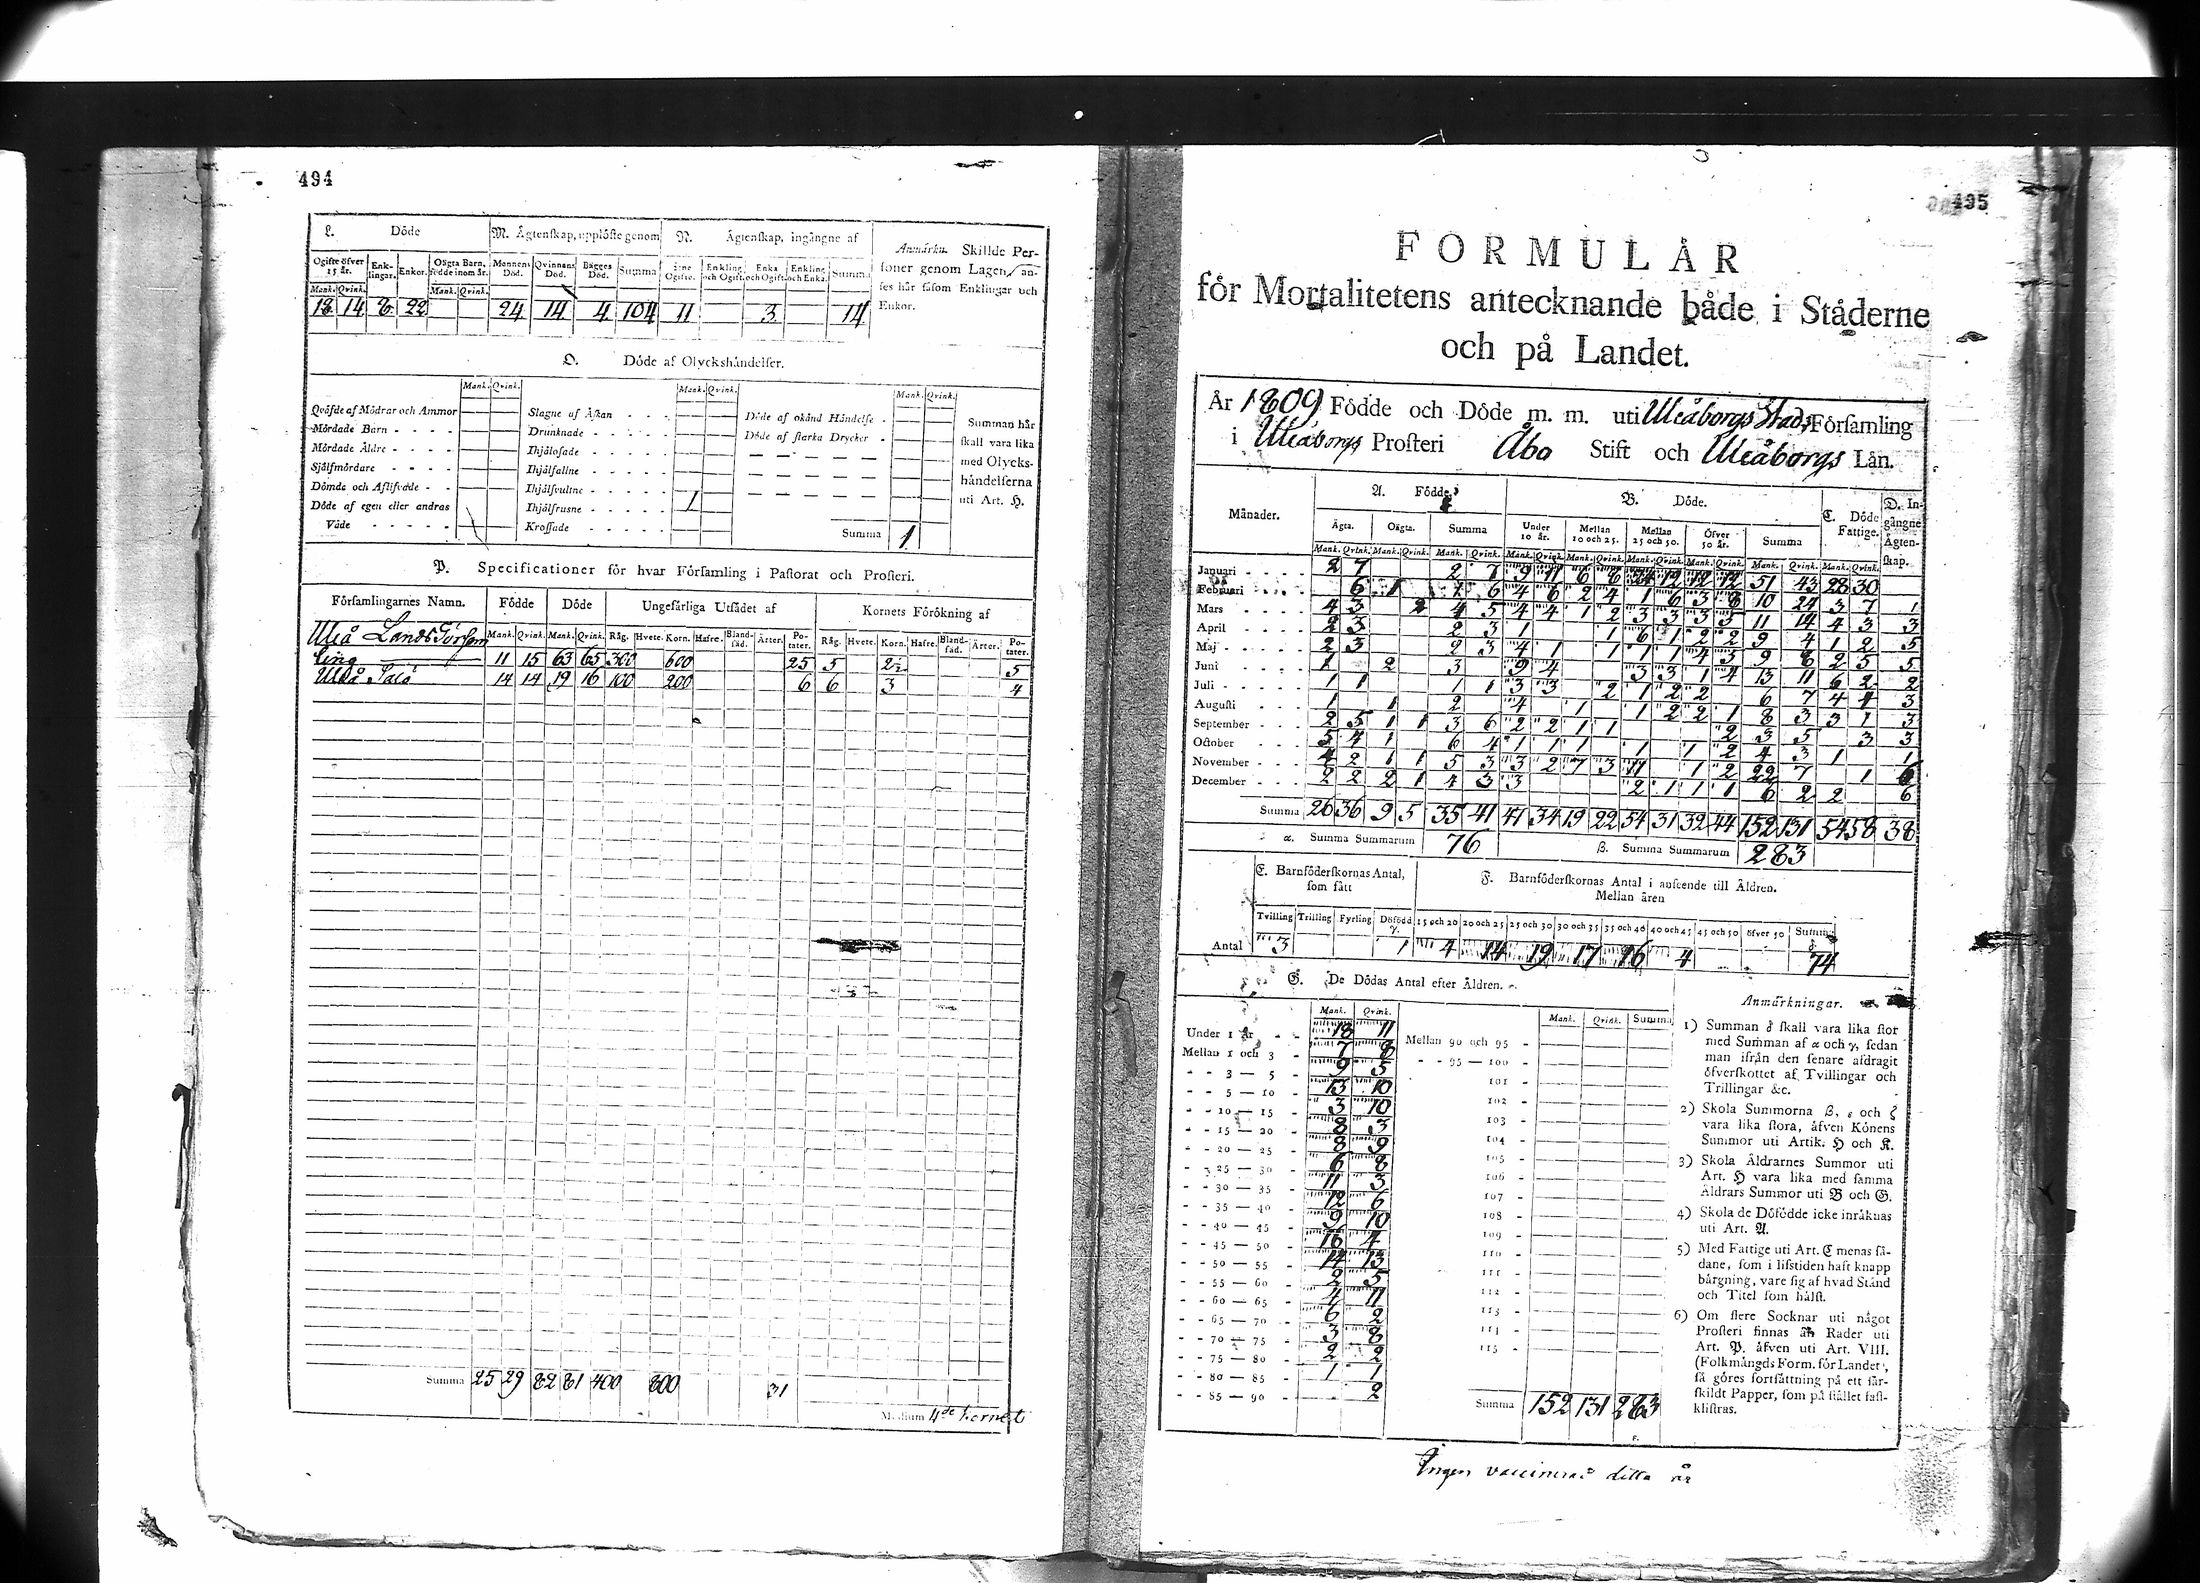 494
L. Döde
M. Ägtenskap, upplöste genom
N. Ägtenskap, ingångne af
Anmärkn. Skillde Per-
soner genom Lagen, an-
ses här såsom Enklingar och
Enkor.
Ogifte öfver 15 år. Enk-lingar. Enkor. Oägta Barn, födde inom år. Mannens Död. Qvinnans Död. Bägges Död. Summa Enkling och Ogift. Enka och Ogift. Enkling och Enka. Summa
Mank. Qvink. Mank. Qvink.
18 14 8 22 24 14 4 104 11 3 14
O. Döde af Olyckshändelser.
Mank. Qvink. Mank. Qvink. Mank. Qvink.
Qväfde af Mödrar och Ammor
Mördade Barn
Mördade Äldre
Sjelfmördare
Dömde och Aflifvade
Döde af egen eller andras
Våde
Slagne af Åskan
Drunknade
Ihjälosade
Ihjälfallne
Ihjälsvultne
Ihjälfrusne 1
Krossade
Döde af okänd Händelse
Döde af starka Drycker
Summa 1
Summan här
skall vara lika
med Olycks-
händelserna
uti Art. H.
P. Specificationer för hvar Församling i Pastorat och Prosteri.
Församlingarnes Namn. Födde Döde Ungefärliga Utsädet af Kornets Förökning af
Mank. Qvink. Mank. Qvink. Råg. Hvete. Korn. Hafre. Bland-säd. Ärter. Po-tater. Råg. Hvete. Korn. Hafre. Bland-säd. Ärter. Po-tater.
Uleå Lands Försam
ling 11 15 63 65 300 600 25 5 2½ 5
Uleå Salo 14 14 19 16 100 200 6 6 3 4
Summa 25 29 82 81 400 800 31
Medium 4de kornet
495
FORMULÅR
för Mortalitetens antecknande både i Ståderne
och på Landet.
År 1809 Födde och Döde m. m. uti Uleåborgs Stads Församling
i Uleåborgs Prosteri Åbo Stift och Uleåborgs Län.
Månader. A. Födde. B. Döde. C. Döde Fattige. D. In-gångne Ägten-skap.
Ägta. Oägta. Summa Under 10 år. Mellan 10 och 25. Mellan 25 och 50. Öfver 50 år. Summa
Mank. Qvink. Mank. Qvink. Mank. Qvink. Mank. Qvink. Mank. Qvink. Mank. Qvink. Mank. Qvink. Mank. Qvink. Mank. Qvink.
Januari 2 7 2 7 9 11 6 8 24 12 12 12 51 43 28 30
Februari 6 1 1 6 4 6 2 4 1 6 3 8 10 24 3 7 1
Mars 4 3 2 4 5 4 4 1 2 3 3 3 5 11 14 4 3 3
April 2 3 2 3 1 1 6 1 2 2 9 4 1 2 5
Maj 2 3 2 3 4 1 1 1 1 4 5 9 8 2 5 5
Juni 1 2 3 9 4 3 3 1 4 13 11 6 2 2
Juli 1 1 1 1 3 3 2 1 2 2 6 7 4 4 3
Augusti 1 1 2 4 1 1 2 2 1 8 3 3 1 3
September 2 5 1 1 3 6 2 2 1 1 2 3 5 3 3
October 5 4 1 6 4 1 1 1 1 1 2 4 3 1 1
November 4 2 1 1 5 3 3 2 7 3 11 1 2 22 7 1 6
December 2 2 2 1 4 3 3 2 1 1 1 6 2 2 6
Summa 26 36 9 5 35 41 47 34 19 22 54 31 32 44 152 131 54 58 38
α. Summa Summarum 76 β. Summa Summarum 283
E. Barnföderskornas Antal,
som fått
F. Barnföderskornas Antal i anseende till Åldren.
Mellan åren
Tvilling Trilling Fyrling Dödfödd γ. 15 och 20 20 och 25 25 och 30 30 och 35 35 och 40 40 och 45 45 och 50 öfver 50 Summa
Antal 3 1 4 14 19 17 16 4 74
G. De Dödas Antal efter Åldren.
Mank. Qvink.
Under 1 år 18 11
Mellan 1 och 3 7 8
3 — 5 9 5
5 — 10 13 10
10 — 15 3 10
15 — 20 8 3
20 — 25 8 9
25 — 30 6 8
30 — 35 11 3
35 — 40 12 6
40 — 45 9 10
45 — 50 16 4
50 — 55 14 13
55 — 60 2 5
60 — 65 4 11
65 — 70 6 2
70 — 75 3 8
75 — 80 2 2
80 — 85 1 1
85 — 90 2
Mank. Qvink. Summa
Mellan 90 och 95
95 — 100
101
102
103
104
105
106
107
108
109
110
111
112
113
114
115
Summa 152 131 283
Anmärkningar.
1) Summan δ skall vara lika stor
med Summan af α och γ, sedan
man ifrån den senare afdragit
öfverskottet af Tvillingar och
Trillingar &c.
2) Skola Summorna β, ε och ζ
vara lika stora, äfven Könens
Summor uti Artik. H och K.
3) Skola Åldrarnes Summor uti
Art. H vara lika med samma
Åldrars Summor uti B och G.
4) Skola de Dödfödde icke inräknas
uti Art. A.
5) Med Fattige uti Art. C menas så-
dane, som i lifstiden haft knapp
bärgning, vare sig af hvad Stånd
och Titel som hälst.
6) Om flere Socknar uti något
Prosteri finnas än Rader uti
Art. P. äfven uti Art. VIII.
(Folkmängds Form. för Landet),
så göres fortsättning på ett sär-
skildt Papper, som på stället fast-
klistras.
Ingen vaccinerad detta år